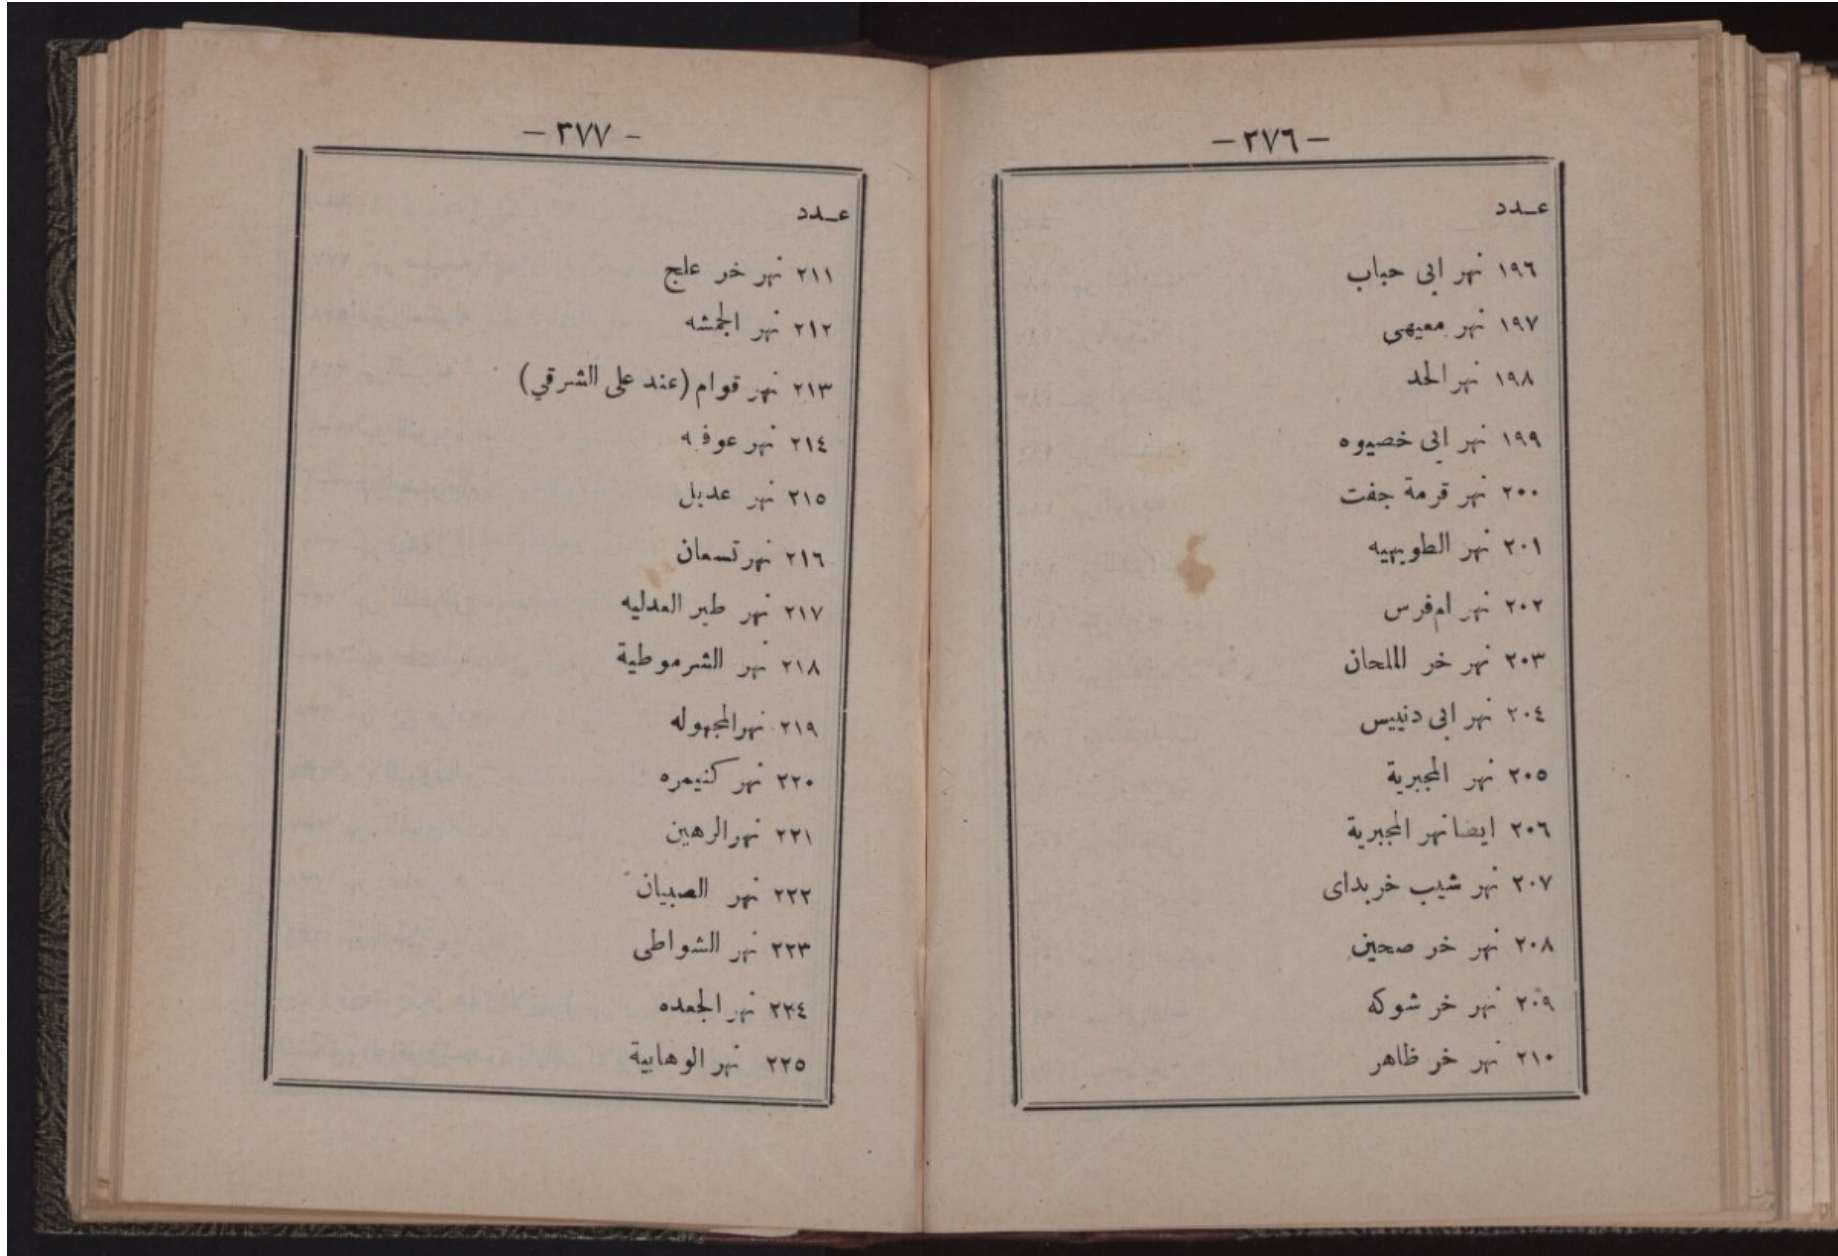 — ٢٧٦ —
عـدد
١٩٦ نهر ابى حباب
١٩٧ نهر معيهى
١٩٨ نهر الحد
١٩٩ نهر ابي خصيوه
٢٠٠ نهر قرمة جفت
٢٠١ نهر الطويهيه
٢٠٢ نهر ام فرس
٢٠٣ نهر خر الملحان
٢٠٤ نهر ابى دنييس
٢٠٥ نهر المجبرية
٢٠٦ ايضا نهر المجبرية
٢٠٧ نهر شيب خريداى
٢٠٨ نهر خر صحين
٢٠٩ نهر خر شوكه
٢١٠ نهر خر ظاهر
— ٢٧٧ —
عـدد
٢١١ نهر خر علج
٢١٢ نهر الجمشه
٢١٣ نهر قوام (عند على الشرقي)
٢١٤ نهر عوفيه
٢١٥ نهر عديل
٢١٦ نهر تسعان
٢١٧ نهر طبر العدليه
٢١٨ نهر الشرموطية
٢١٩ نهر المجهوله
٢٢٠ نهر كنيمره
٢٢١ نهر الرهين
٢٢٢ نهر الصبيان
٢٢٣ نهر الشواطى
٢٢٤ نهر الجعده
٢٢٥ نهر الوهابية